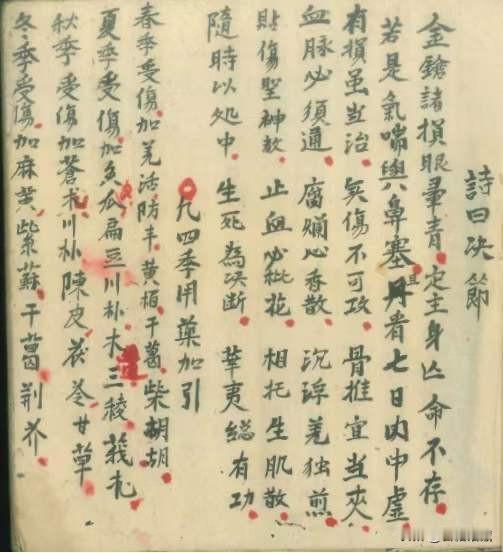 詩曰决節
金鎗諸損眼暈青 定主身亡命不存
若是氣喘與鼻塞 且看七日内中虛
有損虽当治 矣傷不可攻 骨推宜当夾
血脉必須通 腐爛必香散 沉浮羗独煎
貼傷聖神散 止血必枇花 相托生肌散
隨時以处中 生死為决断 華夷総有功
凡四季用藥加引
春季受傷加羗活防丰黄栢干葛柴胡胡
夏季受傷加瓜扁豆川朴木通三稜莪札
秋季受傷加蒼术川朴陳皮茯苓甘草
冬季受傷加麻黄紫蘇干葛荆芥